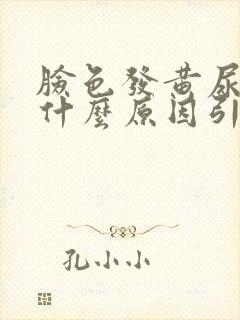 臉色發黃尿
什麼原因引
孔小小